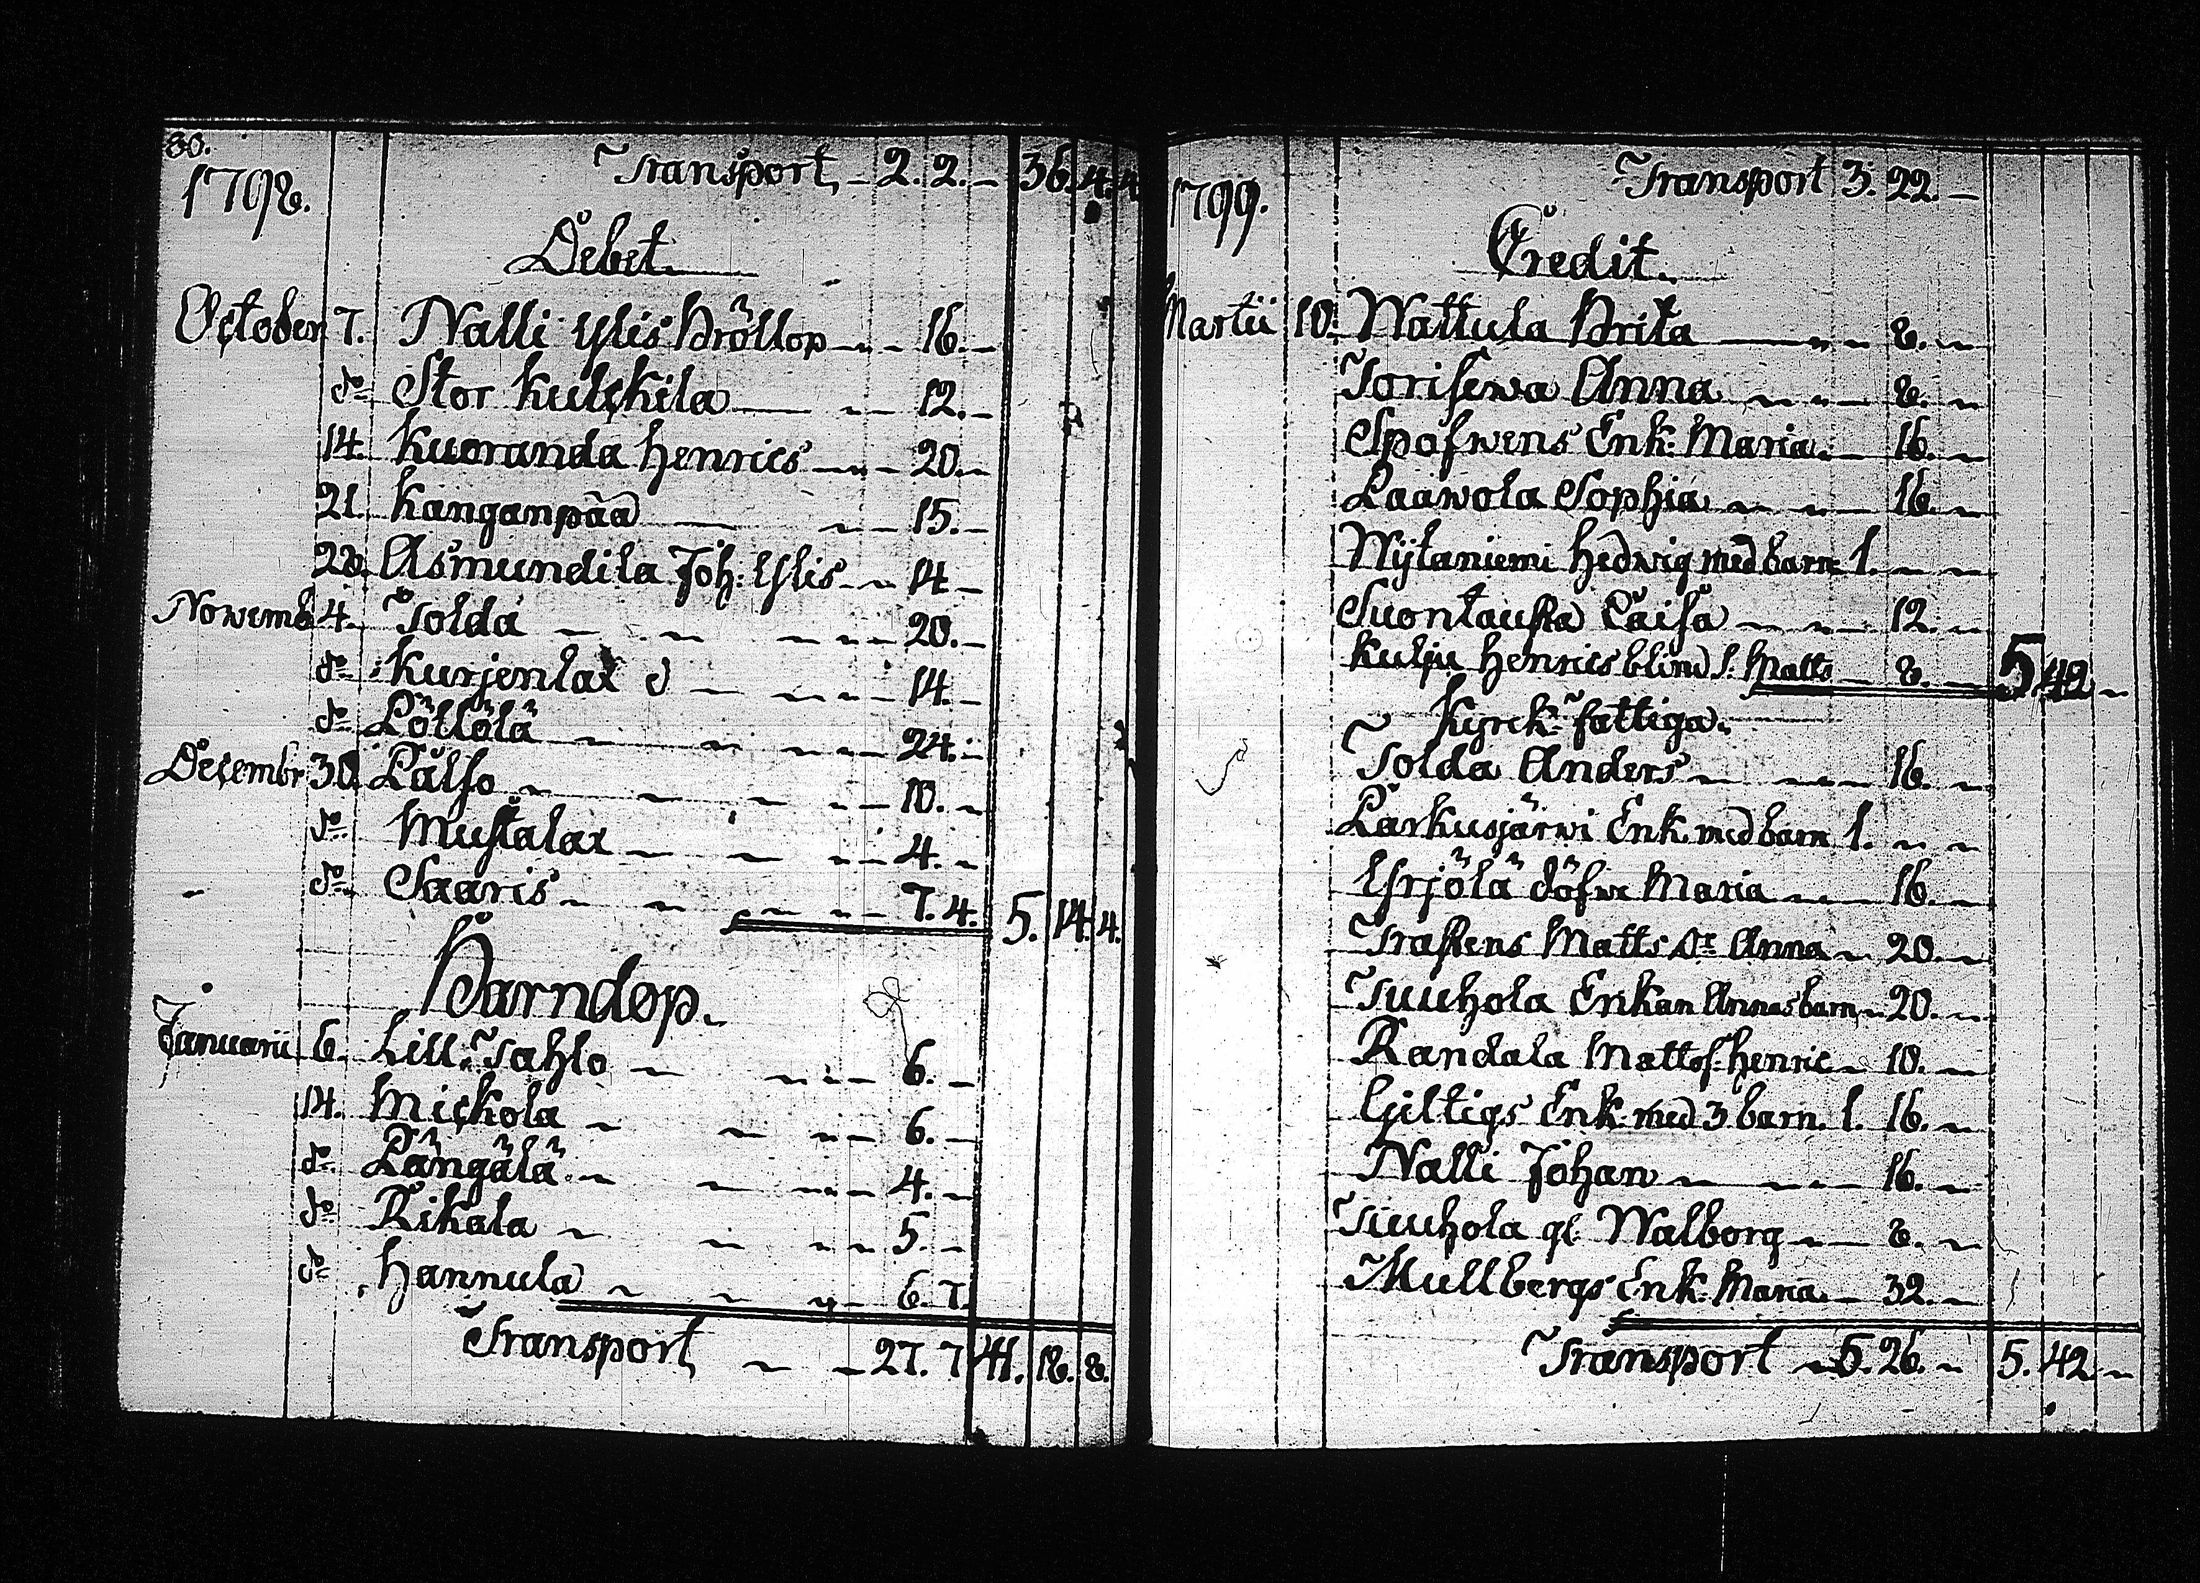 80.
1798. Transport, - 2. 2. - 36. 4. 4
Debet.
October 7. Nalli Ylis Bröllop - - 16. -
do Stor Kulckila - - 12. -
14. Kuoranda Henrics - - 20. -
21. Kanganpää - - 15. -
28. Asmundila Joh: Ylis - - 14 -
Novemb 4. Tolda - - - - 20. -
do Kurjenlax d - - - - 14. -
do Löllölä - - - - 24. -
Decembr 30. Pälso - - - - - 10. -
do Mustalax - - - - 4. -
do Saaris - - - - - 7. 4. 5. 14. 4.
Barndop.
Januarii 6. Lill: Tahlo - - - - 6. -
14. Mickola - - - - 6. -
do Längälä - - - - 4. -
do Rikala - - - - 5. -
do Hannula - - - - 6. 7.
Transport - - 27. 7 41. 18. 8.
1799. Transport 3. 22. -
Credit.
Martii 10. Wattula Brita - - - 8. -
Torisewa Anna - - - 8. -
Spofwens Enk: Maria - 16. -
Laawola Sophia - - - 16. -
Nijtaniemi Hedwig med barn 1. - -
Suontausta Caisa - - - 12. -
Kulju Henrics blind s. Matts - 8. - 5. 42 -
Kyrck: fattiga.
Tolda Anders - - - 16. -
Larkusjärwi Enk med barn 1. - -
Yrjölä döfwe Maria - - 16. -
Trastens Matts Dr Anna - 20. -
Tuuhola Erikan Annas barn - 20. -
Randala Mattss. Henric - 10. -
Giltigs Enk med 3 barn. 1. 16. -
Nalli Johan - - - 16. -
Tuuhola gl. Walborg - - 8. -
Mullbergs Enk: Maria - 32. -
Transport - 5. 26. - 5. 42 -